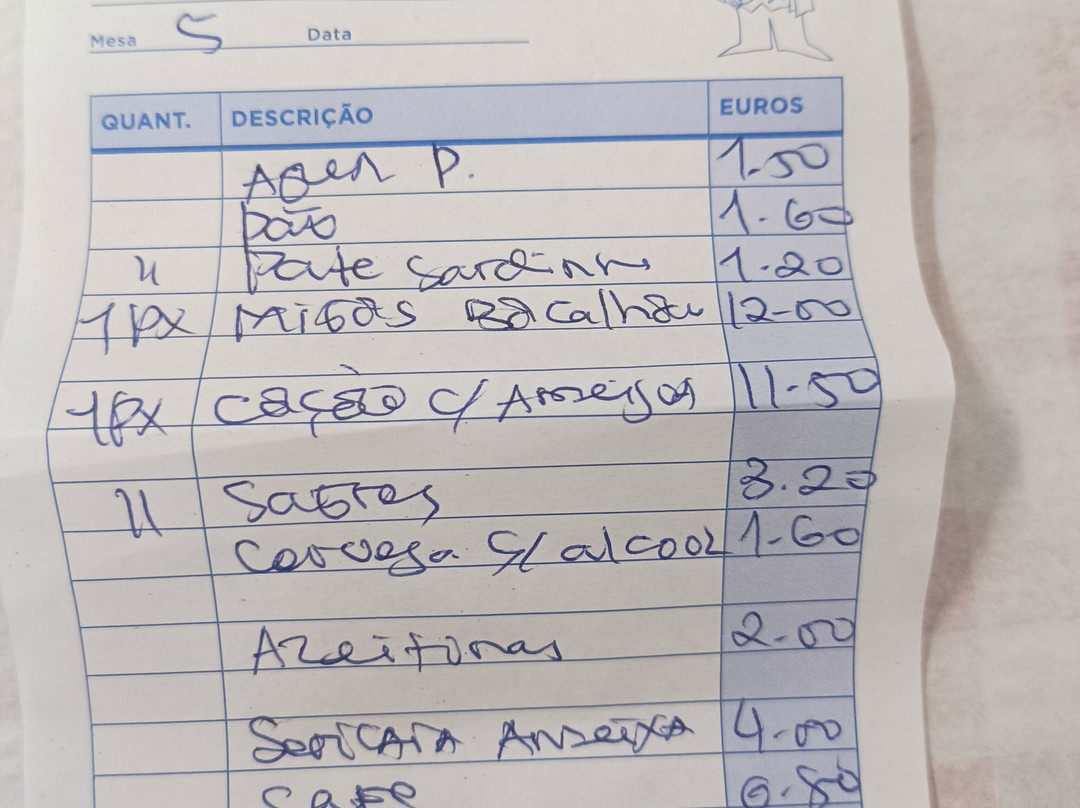 Mesa 5 Data
QUANT. DESCRIÇÃO EUROS
Agua P. 1.50
Pão 1.60
11 Pate Sardinha 1.20
1PX Migas Bacalhau 12-00
1PX Cação c/ 11-50
11 Sagres 3.20
Cerveja S/ alcool 1-60
Azeitonas 2.00
Sericaia Ameixa 4.00
Cafe 0.80